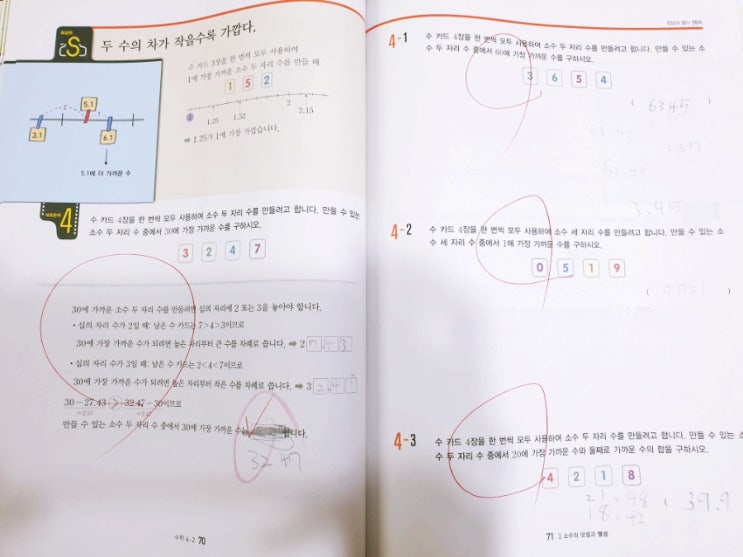 S
두 수의 차가 작을수록 가깝다.
수 카드 3장을 한 번씩 모두 사용하여
1에 가장 가까운 소수 두 자리 수를 만들 때
1 5 2
1 1.25 1.52 2 2.15
⇒ 1.25가 1에 가장 가깝습니다.
2
5.1
3.1
6.1
5.1에 더 가까운 수
4
수 카드 4장을 한 번씩 모두 사용하여 소수 두 자리 수를 만들려고 합니다. 만들 수 있는
소수 두 자리 수 중에서 30에 가장 가까운 수를 구하시오.
3 2 4 7
30에 가까운 소수 두 자리 수를 만들려면 십의 자리에 2 또는 3을 놓아야 합니다.
• 십의 자리 수가 2일 때: 남은 수 카드는 7>4>3이므로
30에 가장 가까운 수가 되려면 높은 자리부터 큰 수를 차례로 씁니다. ⇒ 2 7.4 3
• 십의 자리 수가 3일 때: 남은 수 카드는 2<4<7이므로
30에 가장 가까운 수가 되려면 높은 자리부터 작은 수를 차례로 씁니다. ⇒ 3 2.4
30-27.43 > 32.47-30이므로
만들 수 있는 소수 두 자리 수 중에서 30에 가장 가까운 수는
32.47
수학 4-2 70
4-1
수 카드 4장을 한 번씩 모두 사용하여 소수 두 자리 수를 만들려고 합니다. 만들 수 있는 소
수 두 자리 수 중에서 60에 가장 가까운 수를 구하시오.
3 6 5 4
( 63.45 )
3.45
4-2
수 카드 4장을 한 번씩 모두 사용하여 소수 세 자리 수를 만들려고 합니다. 만들 수 있는 소
수 세 자리 수 중에서 1에 가장 가까운 수를 구하시오.
0 5 1 9
4-3
수 카드 4장을 한 번씩 모두 사용하여 소수 두 자리 수를 만들려고 합니다. 만들 수 있는 소
수 두 자리 수 중에서 20에 가장 가까운 수와 둘째로 가까운 수의 합을 구하시오.
4 2 1 8
21.48
18.42
( 39.9
71 3 소수의 덧셈과 뺄셈